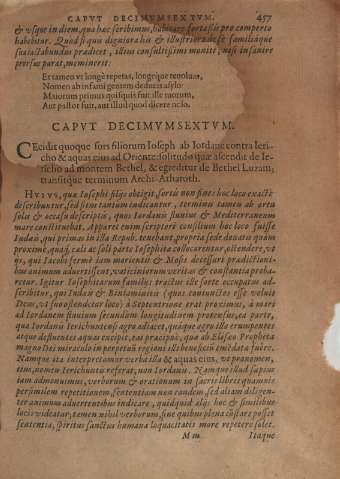 CAPVT DECIMVM SEXTVM. 457
& vsque in diem, qua hac scribimus, habitare fortassis pro comperto
habebitur. Quòd si quis dignitatis & illustriora de se familiáque
sua iactabundus prædicet, illius consultissimi muniti, nisi insanire
prorsus parat, meminerit:
Et tamen vt longè repetas, longéque reuoluas,
Nomen ab infami gentem deducis asylo.
Maiorum primus quisquis fuit ille tuorum,
Aut pastor fuit, aut illud quod dicere nolo.
CAPVT DECIMVMSEXTVM.
Cecidit quoque sors filiorum Ioseph ab Iordane contra Ieri-
cho & aquas eius ad Orientē: solitudo quæ ascendit de Ie-
richo ad montem Bethel, & egreditur de Bethel Luzam;
transitque terminum Archi-Atharoth.
HVIVS, quæ Iosephi filijs obtigit, sortis non fines hoc loco exactè
describuntur, sed lineæ tantùm indicantur, termini tamen ab ortu
solis & occasu descriptis, quos Iordanis fluuius & Mediterraneum
mare constituebat. Apparet enim scriptoris consilium hoc loco fuisse
Iudæi, qui primas in illa Repub. tenebant, propria sede donatis quàm
proximè, quasi cæli ac soli parte Iosephitæ collocarentur, ostendere, vt
qui Iacobi ferme iam morientis & Mosis decessuri prædictioni-
bus animum aduertissent, vaticiniorum veritas & constantia proba-
retur. Igitur Iosephitarum familiis tractus ille sorte occupatus ad-
scribitur, qui Iudæ & Biniaminitis (quos coniunctos esse voluit
Deus, vt suo ostendetur loco) à Septentrione erat proximus, à mari
ad Iordanem fluuium secundum longitudinem protensus, ea parte,
qua Iordanis Ierichuntensis agro adiacet, quáque agro illa erumpentes
atque defluentes aquæ conciliat, eæ præcipuè, quæ ab Elisæo Propheta
magno Dei miraculo in perpetuū regionis illi beneficiū emēdatæ fuêre.
Namque ita interpretamur verba illa & aquas eius, vt pronomen,
eius, nomen Ierichuntis referat, non Iordanis. Namque illud sæpius
iam admonuimus, verborum & orationum in sacris libris quamuis
persimilem repetitionem, sententiam non eandem, sed aliam diligen-
ter animum aduertentibus indicare, quidquid aliis hoc & similibus
locis videatur, temerè nihil verborum, sine quibus plena constare posset
sententia, spiritus sanctus humana loquacitatis more repetere solet.
M m Itaque